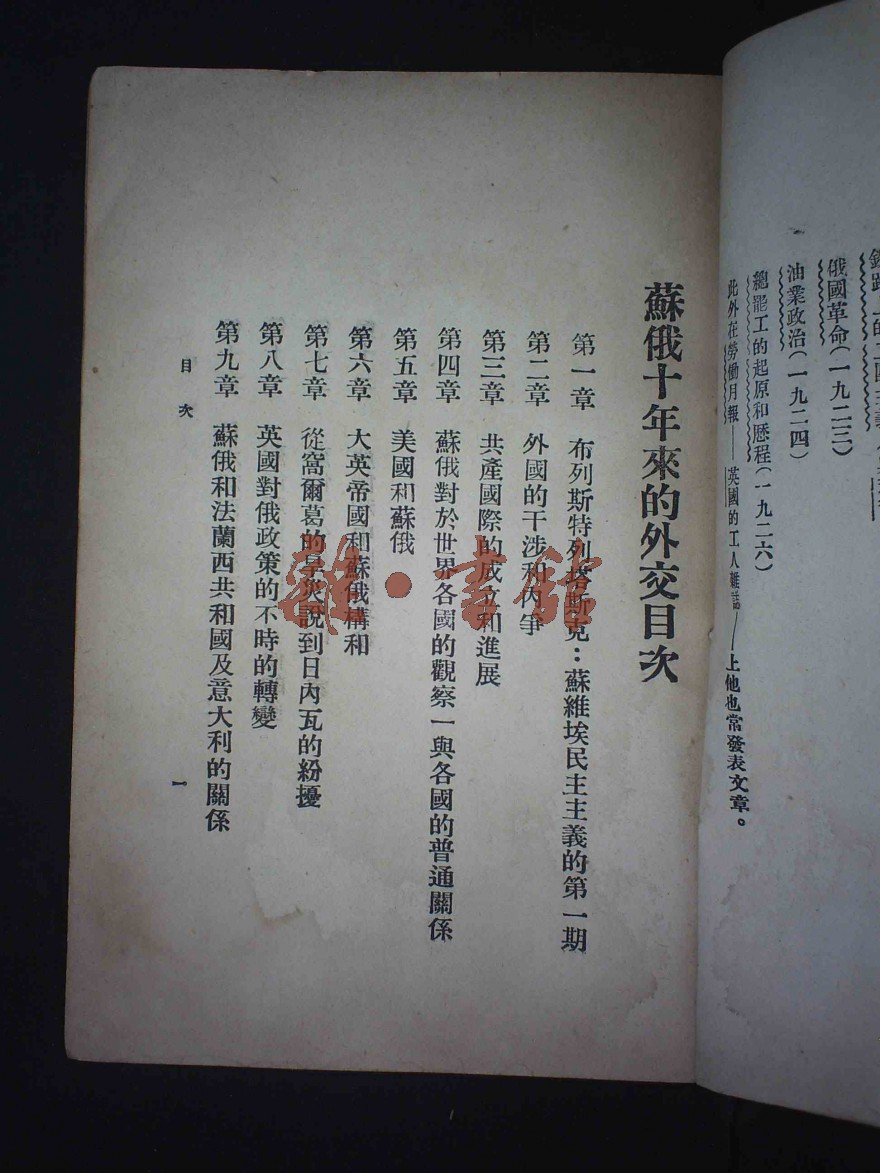 俄國革命(一九二三)
油業政治(一九二四)
總罷工的起原和歷程(一九二六)
此外在勞働月報——英國的工人雜誌——上他也常發表文章。
蘇俄十年來的外交目次
第一章 布列斯特列塔斯克：蘇維埃民主主義的第一期
第二章 外國的干涉和內爭
第三章 共產國際的成立和進展
第四章 蘇俄對於世界各國的觀察一與各國的普通關係
第五章 美國和蘇俄
第六章 大英帝國和蘇俄構和
第七章 從窩爾葛的旱災說到日內瓦的紛擾
第八章 英國對俄政策的不時的轉變
第九章 蘇俄和法蘭西共和國及意大利的關係
目次
一
雜·書館